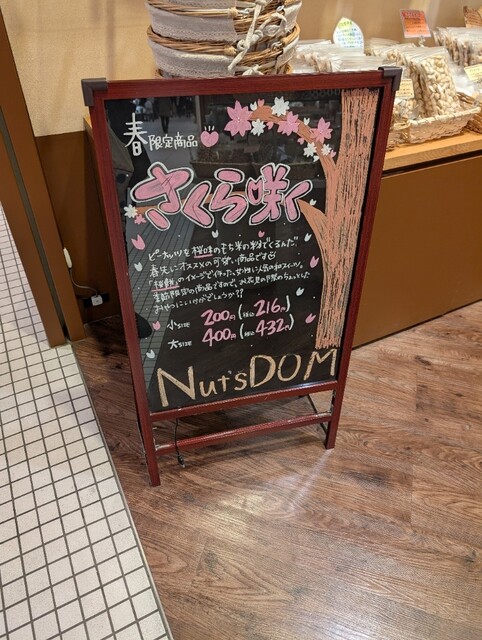 春限定商品
さくら咲く
ピーナッツを桜味のもち米の粉でくるんだ
春先にオススメの可愛い商品です
「桜餅」のイメージで作った、女性に人気の和スイーツ。
季節限定の商品ですので、お花見の際のちょっとした
おやつにいかがでしょうか??
小SIZE 200円(税込216円)
大SIZE 400円(税込432円)
Nut'sDOM